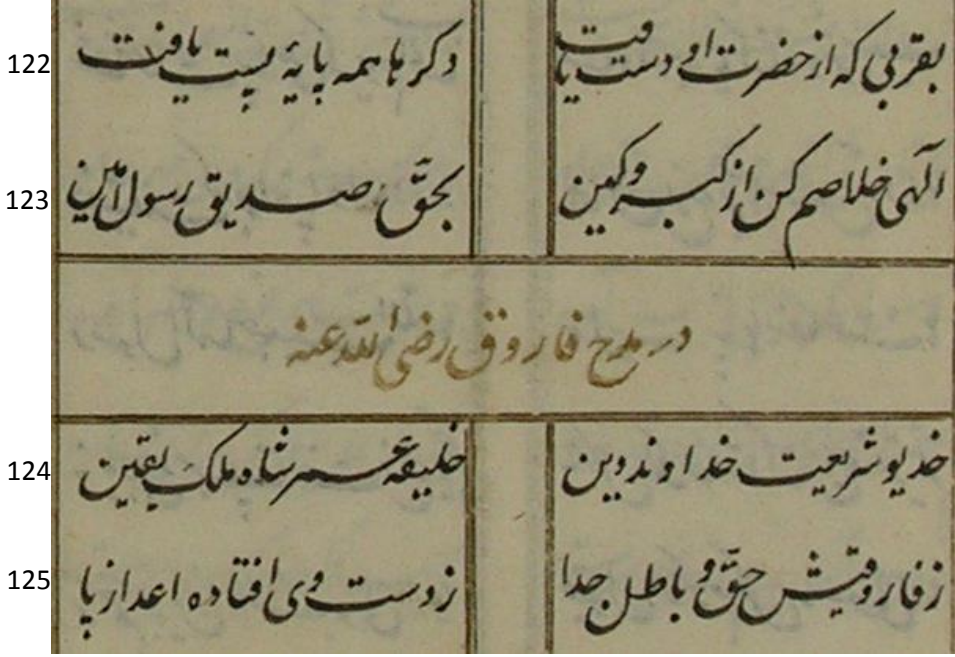 122 بقربی که از حضرت او دست یافت دکرها همه پایهٔ پست یافت
123 الهی خلاصم کن از کبر و کین بحقّ صدیق رسول امین
در مدح فاروق رضی الله عنه
124 خدیو شریعت خداوند دین خلیفه عمر شاه ملک یقین
125 زفاروقیش حقّ و باطل جدا زدست وی افتاده اعدا ز پا